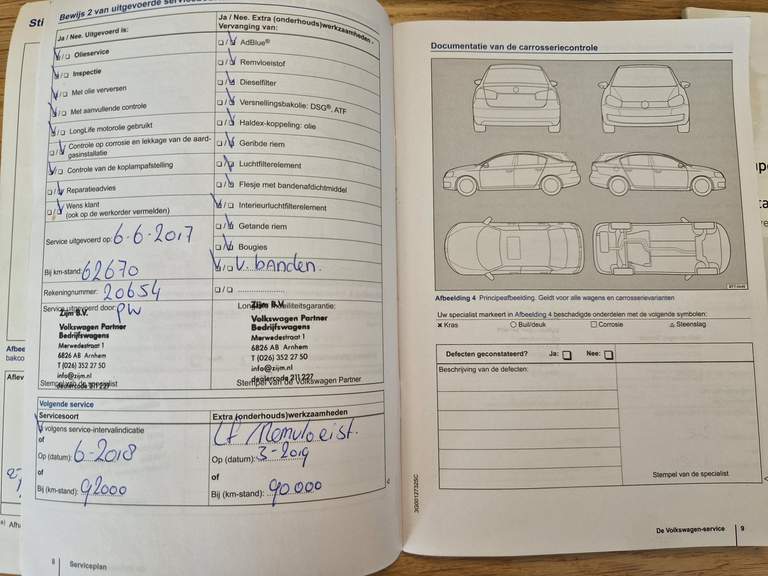 Sti
Bewijs 2 van uitgevoerde
Ja / Nee. Uitgevoerd is:
Ja / Nee. Extra (onderhouds)werkzaamheden - Vervanging van:
Olieservice
Inspectie
Met olie verversen
Met aanvullende controle
LongLife motorolie gebruikt
Controle op corrosie en lekkage van de aard-
gasinstallatie
Controle van de koplampafstelling
Reparatieadvies
Wens klant
(ook op de werkorder vermelden)
AdBlue®
Remvloeistof
Dieselfilter
Versnellingsbakolie: DSG®, ATF
Haldex-koppeling: olie
Geribde riem
Luchtfilterelement
Flesje met bandenafdichtmiddel
Interieurluchtfilterelement
Getande riem
Bougies
V. banden.
Service uitgevoerd op: 6-6-2017
Bij km-stand: 62670
Rekeningnummer: 20654
Service uitgevoerd door: PW
Zijm B.V.
Volkswagen Partner
Bedrijfswagens
Merwedestraat 1
6826 AB Arnhem
T (026) 352 27 50
info@zijm.nl
dealercode 211 227
Stempel van de specialist
Zijm B.V.
Volkswagen Partner
Bedrijfswagens
Merwedestraat 1
6826 AB Arnhem
T (026) 352 27 50
info@zijm.nl
dealercode 211 227
Stempel van de Volkswagen Partner
Volgende service
Servicesoort
volgens service-intervalindicatie
of
Op (datum): 6-2018
of
Bij (km-stand): 92000
Extra (onderhouds)werkzaamheden
Op (datum): 3-2019
of
Bij (km-stand): 90000
8 Serviceplan
Documentatie van de carrosseriecontrole
Afbeelding 4 Principeafbeelding. Geldt voor alle wagens en carrosserievarianten
Uw specialist markeert in Afbeelding 4 beschadigde onderdelen met de volgende symbolen:
× Kras ○ Buil/deuk □ Corrosie △ Steenslag
Defecten geconstateerd? Ja: □ Nee: □
Beschrijving van de defecten:
Stempel van de specialist
3G0012732SC
De Volkswagen-service 9